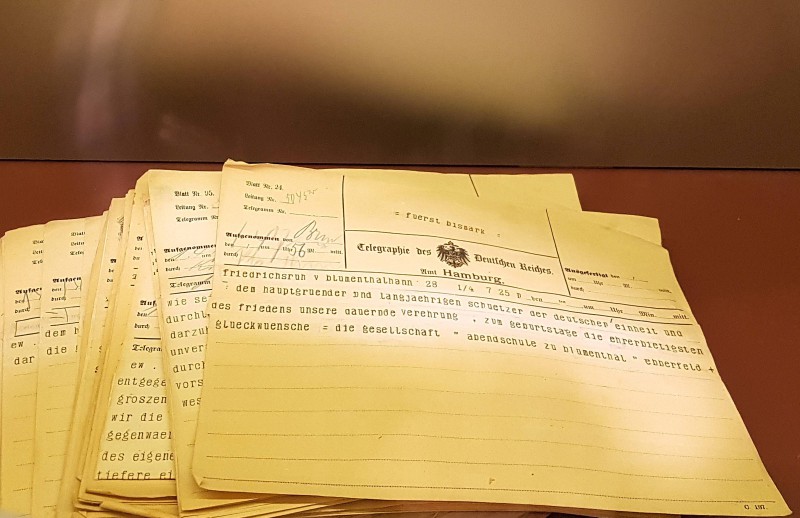 Blatt Nr. 24.
Leitung Nr.
Telegramm Nr.
= fuerst bismark =
Aufgenommen von
den um Uhr 56 Min.
durch
Telegraphie des Deutschen Reiches.
Amt Hamburg.
Ausgefertigt den
um Uhr M.
durch
friedrichsruh v blumenthalhann 28 1/4 7 25 D den um Uhr Min. mitt.
= dem hauptgruender und langjaehrigen schuetzer der deutschen einheit und
des friedens unsere dauernde verehrung . zum geburtstage die ehrerbietigsten
glueckwuensche = die gesellschaft " abendschule zu blumenthal " ebberfeld +
C. 187.
Blatt Nr. 95.
Leitung Nr.
Telegramm Nr.
Aufgenommen
den
durch
Telegramm
wie
durchl
darzub
unver
durch
vors
wes
ew .
entgege
groszen
wir die
gegenwaer
des eigene
tiefere ei
dem h
die
ew .
dar